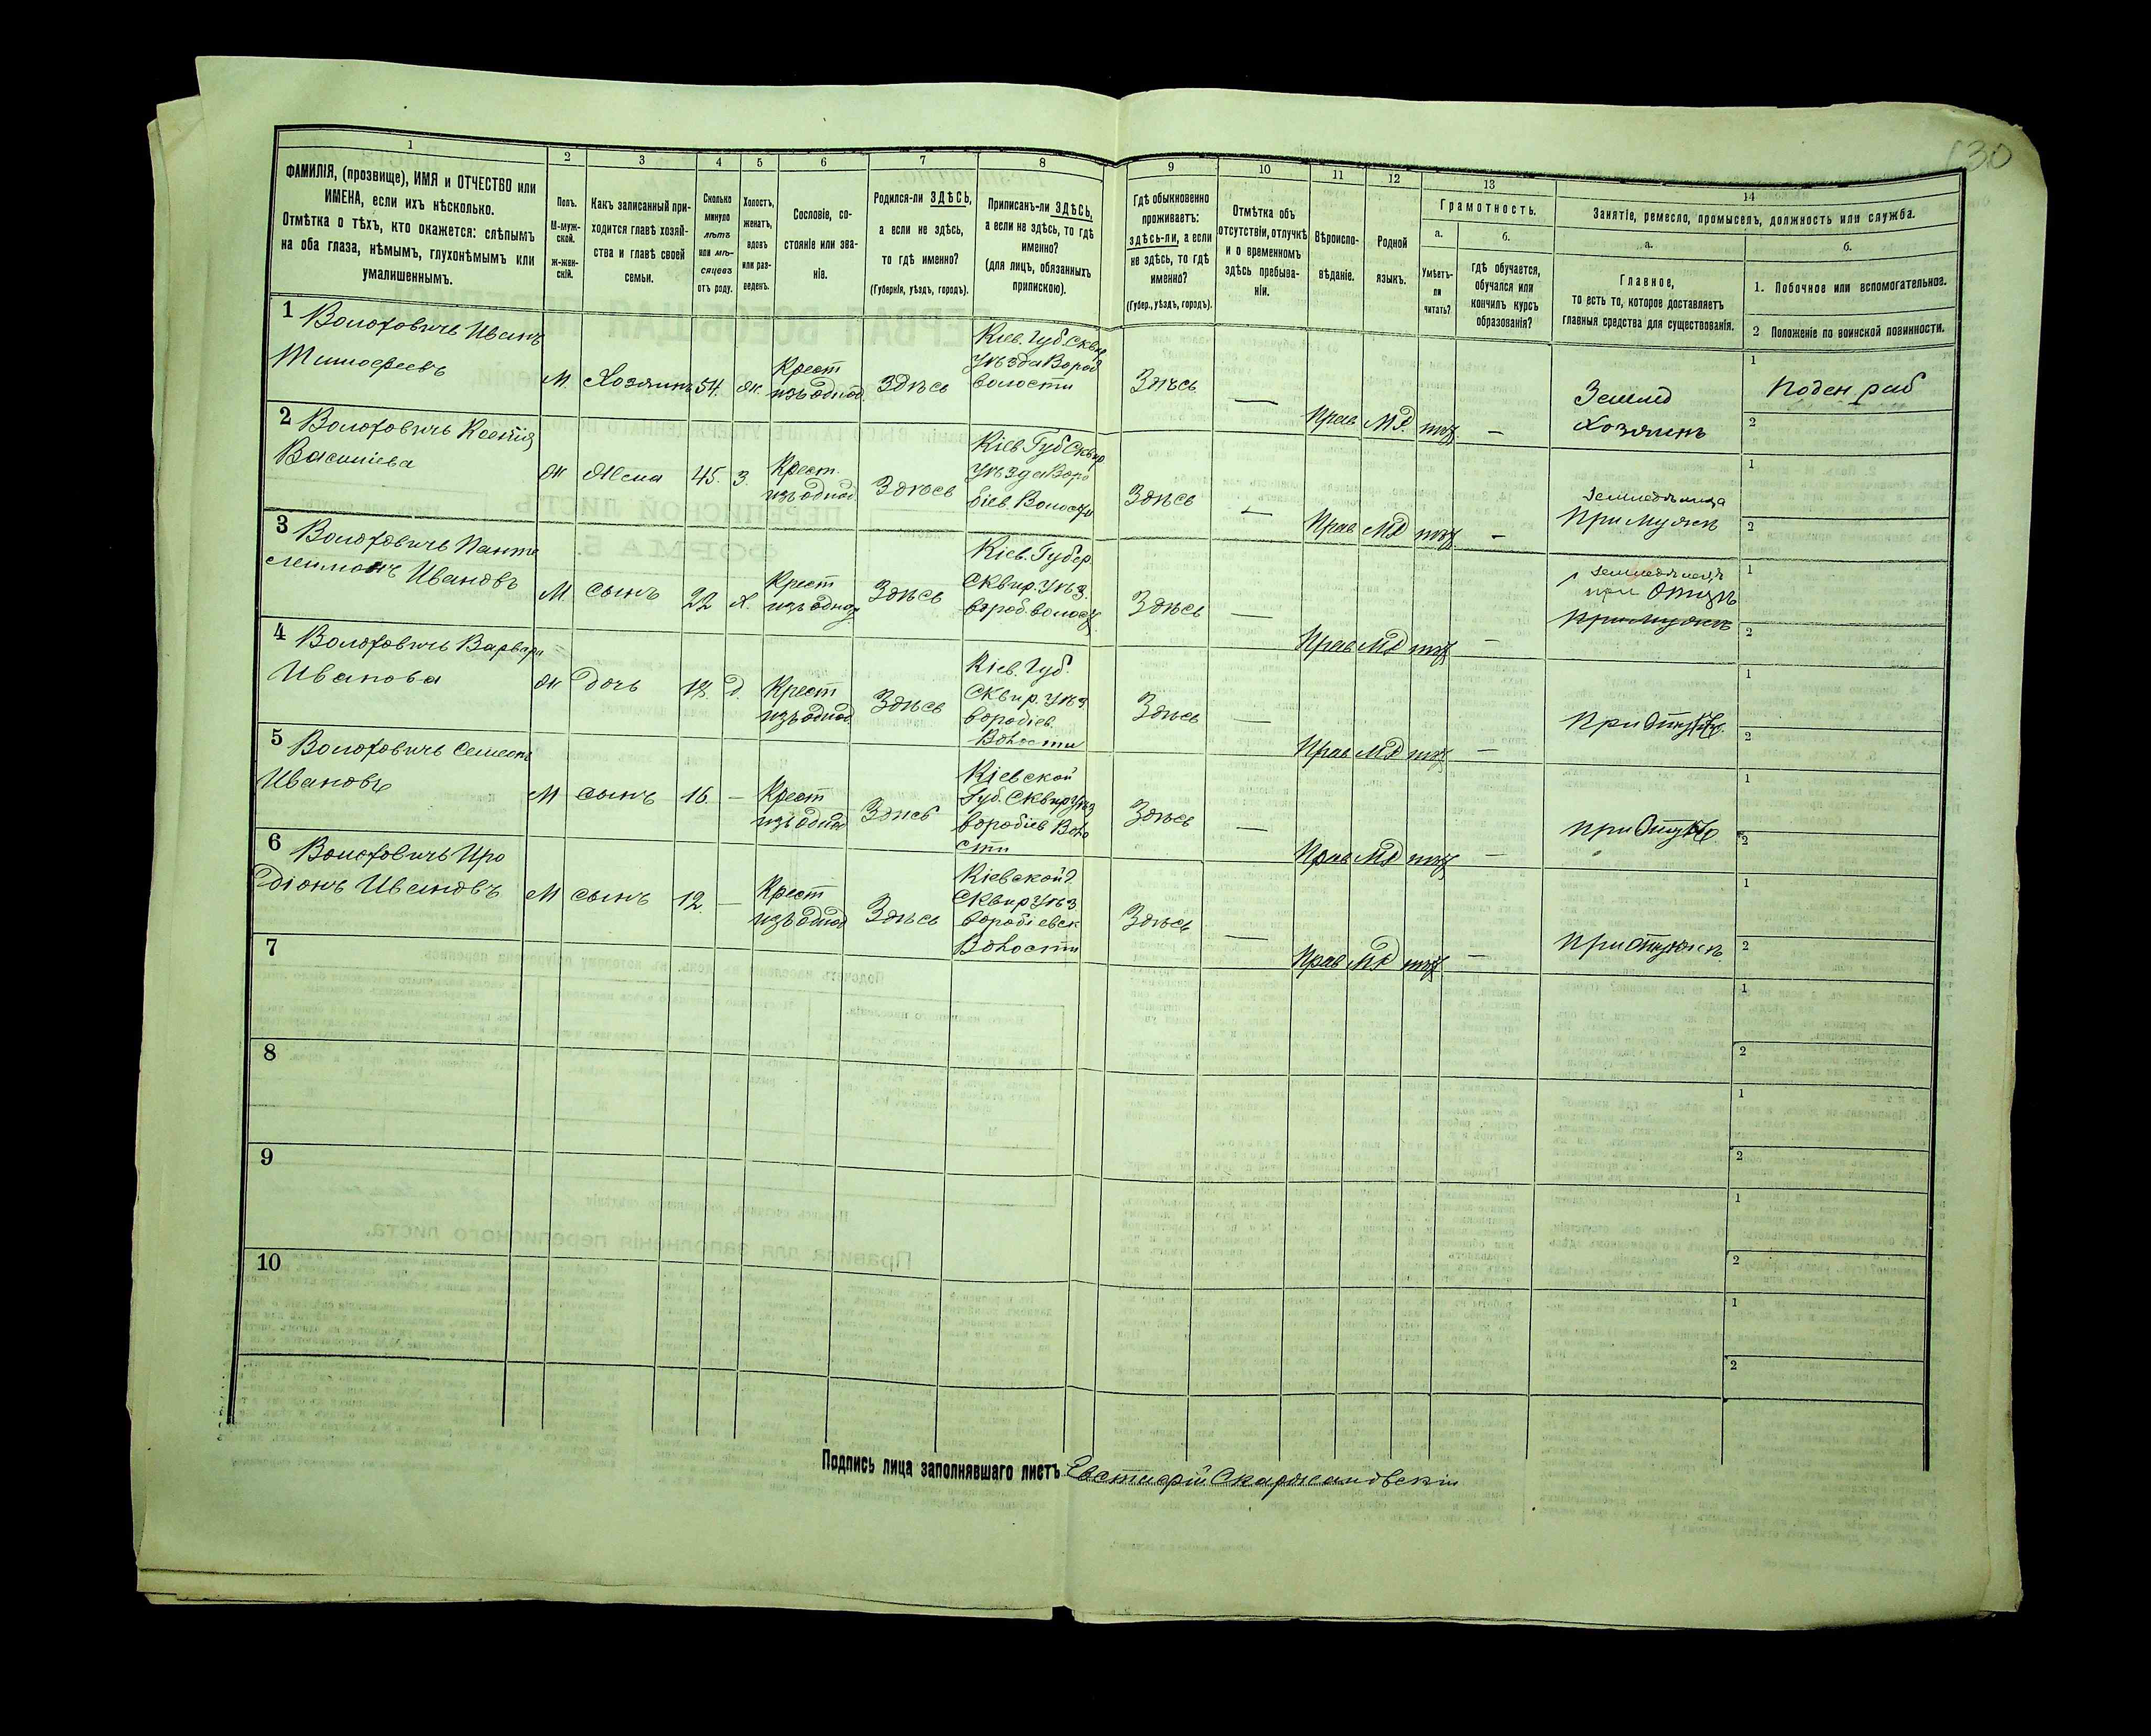 130
1
2
3
4
5
6
7
8
9
10
11
12
13
14
ФАМИЛІЯ, (прозвище), ИМЯ и ОТЧЕСТВО или
ИМЕНА, если ихъ нѣсколько.
Отмѣтка о тѣхъ, кто окажется: слѣпымъ
на оба глаза, нѣмымъ, глухонѣмымъ или
умалишеннымъ.
Полъ.
М-муж-
ской.
ж-жен-
скій.
Какъ записанный при-
ходится главѣ хозяй-
ства и главѣ своей
семьи.
Сколько
минуло
лѣтъ
или мѣ-
сяцевъ
отъ роду.
Холостъ,
женатъ,
вдовъ
или раз-
веденъ.
Сословіе, со-
стояніе или зва-
ніе.
Родился-ли ЗДѢСЬ,
а если не здѣсь,
то гдѣ именно?
(Губернія, уѣздъ, городъ).
Приписанъ-ли ЗДѢСЬ,
а если не здѣсь, то гдѣ
именно?
(для лицъ, обязанныхъ
припискою).
Гдѣ обыкновенно
проживаетъ:
здѣсь-ли, а если
не здѣсь, то гдѣ
именно?
(Губер., уѣздъ, городъ).
Отмѣтка объ
отсутствіи, отлучкѣ
и о временномъ
здѣсь пребыва-
ніи.
Вѣроиспо-
вѣданіе.
Родной
языкъ.
Грамотность.
а.
Умѣетъ-
ли
читать?
б.
гдѣ обучается,
обучался или
кончилъ курсъ
образованія?
Занятіе, ремесло, промыселъ, должность или служба.
а.
Главное,
то есть то, которое доставляетъ
главныя средства для существованія.
б.
1. Побочное или вспомогательное.
2 Положеніе по воинской повинности.
1 Волоховичъ Иванъ
Тимофеевъ
М. Хозяинъ 54. ж. Крест
изъ однод. Здѣсь
Кіев. Губ. Сквир
Уѣзда Вороб
волости
Здѣсь — Прав М.Р. —
Землед
Хозяинъ
1 Поден раб
2
2 Волоховичъ Ксенія
Василіева
ж Жена 45. З. Крест.
изъ однод. Здѣсь
Кіев Губ Сквир
Уѣзда Воро
біев. Волости
Здѣсь — Прав МР —
При мужѣ
1
2
3 Волоховичъ Панте
леимонъ Ивановъ
М. сынъ 22 х. Крест
изъ однод Здѣсь
Кіев. Губер
Сквир. Уѣз.
вороб. волост
Здѣсь — Прав МР —
при Отцѣ
при мужѣ
1
2
4 Волоховичъ Варвара
Иванова
ж дочь д. Крест
изъ однод Здѣсь
Кіев. Губ.
Сквир. Уѣз
воробіев.
Волости
Здѣсь — Прав МР —
1
2
5 Волоховичъ Семенъ
Ивановъ
М сынъ 16. — Крест
изъ однод Здѣсь
Кіевской
Губ. Сквир Уѣз
воробіев Воло
сти
Здѣсь — Прав МР —
1
2
6 Волоховичъ Иро
діонъ Ивановъ
М сынъ 12. — Крест
изъ однод Здѣсь
Кіевской г
Сквир Уѣз
воробіевск
Волости
Здѣсь — Прав МР —
1
2
7
1
2
8
1
2
9
1
2
10
1
2
Подпись лица заполнявшаго листъ Евстафій Скаржановскій